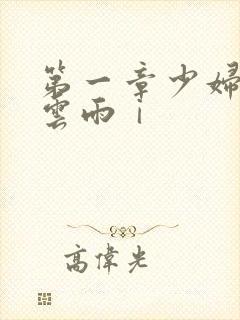 第一章少婦
雲雨｜
高偉光